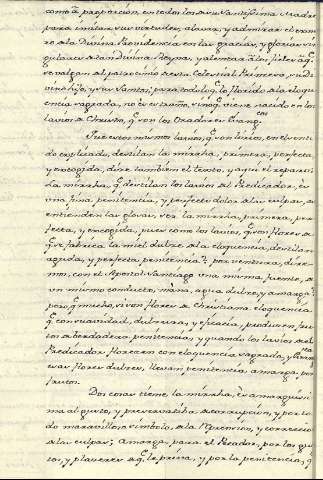 como â proporcion, en todos los su Santissima Madre
para imitar sus virtudes, alavar, y admirar el esme
ro de la Divina Providencia en las gracias, y glorias sin
gulares de tan divina Reyna, y alentar â los fieles â q.e
se valgan de el patrocinio de esta Celestial Princesa, su di
vino hijo, y sus Santos; para todo lo q.l lo florido de la eloq
encia sagrada, no es de su daño, sino q.e viene nacido en los
lavios de Christo, q.e son los Oradores Evang.cos
Pues estos mismos lavios, q.e son lirios, en el senti
do explicado, destilan la mirrha, primera, perfecta,
y escogida, dice tambien el texto, y aqui el reparo:
La mirrha, q.e destilan los lavios de el Predicador, es
una fina penitencia, y perfecto dolor de las culpas, de
entienden las glosas, ser la mirrha, primera, per
fecta, y escogida, pues como los lavios, q.e son flores de
q.e se fabrica la miel dulce de la eloquencia, destilan
aguda, y perfecta penitencia? por ventura, dire
mos, con el Apostol Santiago una misma fuente, de
un mismo conducto, mana, agua dulce, y amarga?
pero q.e mucho, si son flores de Christiana eloquencia
q.e con suavidad, dulzura, y eficacia, producen fru
tos de verdadera penitencia, y quando los lavios de el
Predicador florecen con eloquencia sagrada, y
esas flores dulces, llevan penitencia amarga, por
frutos.
Dos cosas tiene la mirrha, es amarguissi
ma al gusto, y preservativa de corrupcion, y por to
do maravilloso simbolo, de la reprension, y correccion
de las culpas; amarga, para el Pecador, por los gus
tos, y plazeres de q.e le priva, y por la penitencia, q.e